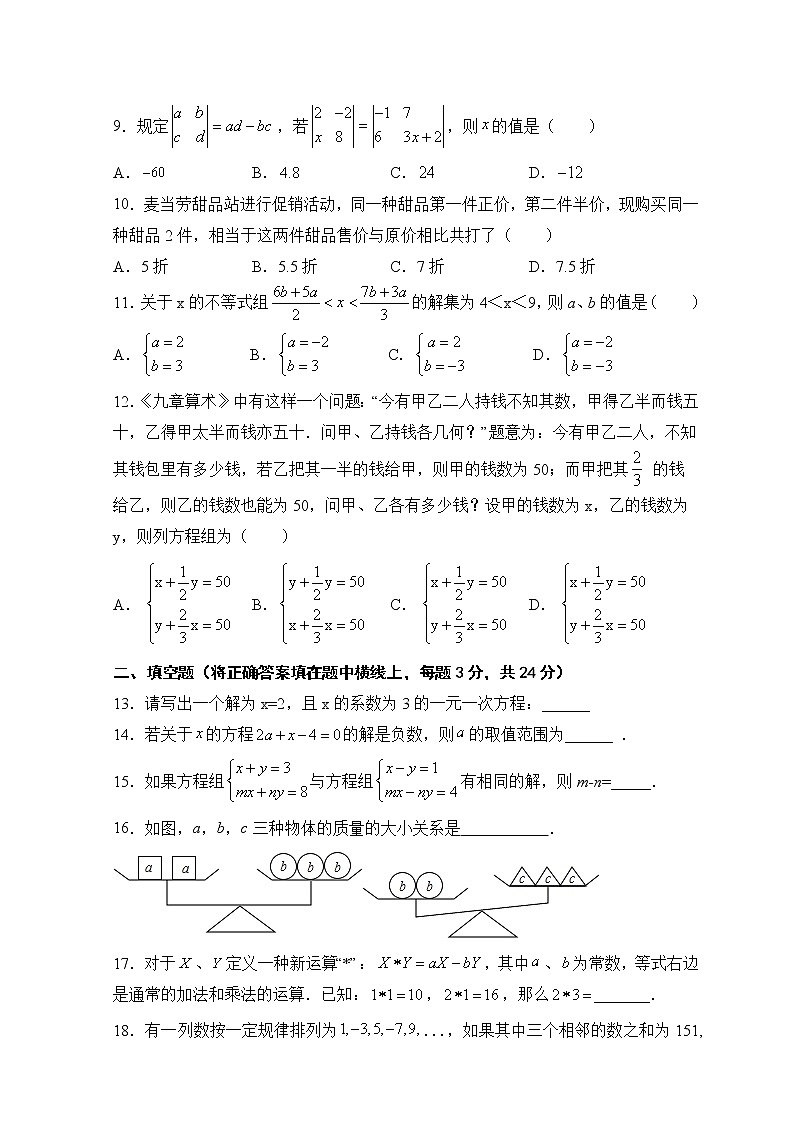 9．规定|a b; c d|=ad−bc，若|2 −2; x 8|=|−1 7; 6 3x+2|，则x的值是（　　）
A．−60 B．4.8 C．24 D．−12
10．麦当劳甜品站进行促销活动，同一种甜品第一件正价，第二件半价，现购买同一
种甜品2件，相当于这两件甜品售价与原价相比共打了（　　）
A．5折 B．5.5折 C．7折 D．7.5折
11．关于x的不等式组(6b+5a)/2<x<(7b+3a)/3的解集为4＜x＜9，则a、b的值是（　　）
A．{a=2, b=3 B．{a=−2, b=3 C．{a=2, b=−3 D．{a=−2, b=−3
12．《九章算术》中有这样一个问题：“今有甲乙二人持钱不知其数，甲得乙半而钱五
十，乙得甲太半而钱亦五十．问甲、乙持钱各几何？”题意为：今有甲乙二人，不知
其钱包里有多少钱，若乙把其一半的钱给甲，则甲的钱数为50；而甲把其2/3 的钱
给乙，则乙的钱数也能为50，问甲、乙各有多少钱？设甲的钱数为x，乙的钱数为
y，则列方程组为（　　）
A．{x+1/2y=50, y+2/3x=50 B．{y+1/2y=50, x+2/3x=50 C．{x+1/2y=50, y+2/3x=50 D．{x+1/2y=50, y+2/3x=50
二、填空题（将正确答案填在题中横线上，每题3分，共24分）
13．请写出一个解为x=2，且x的系数为3的一元一次方程：______
14．若关于x的方程2a+x−4=0的解是负数，则a的取值范围为______．
15．如果方程组{x+y=3, mx+ny=8与方程组{x−y=1, mx−ny=4有相同的解，则m-n=_____．
16．如图，a，b，c三种物体的质量的大小关系是___________．
a a b b b b b c c c
17．对于X、Y定义一种新运算“*”：X*Y=aX−bY，其中a、b为常数，等式右边
是通常的加法和乘法的运算．已知：1*1=10，2*1=16，那么2*3=_______．
18．有一列数按一定规律排列为1,−3,5,−7,9,...，如果其中三个相邻的数之和为151,